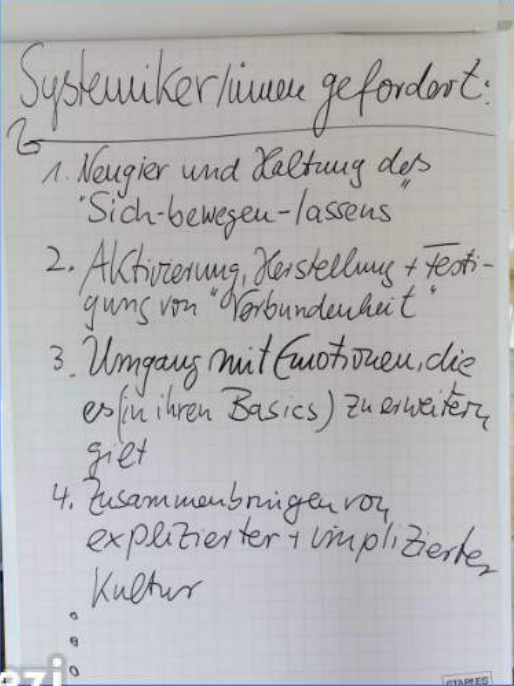 Systemiker/innen gefordert:
1. Neugier und Haltung des
"Sich-bewegen-lassens"
2. Aktivierung, Herstellung + Festi-
gung von "Verbundenheit"
3. Umgang mit Emotionen, die
es (in ihren Basics) zu erweitern
gilt
4. Zusammenbringen von
explizierter + implizierter
Kultur
STAPLES